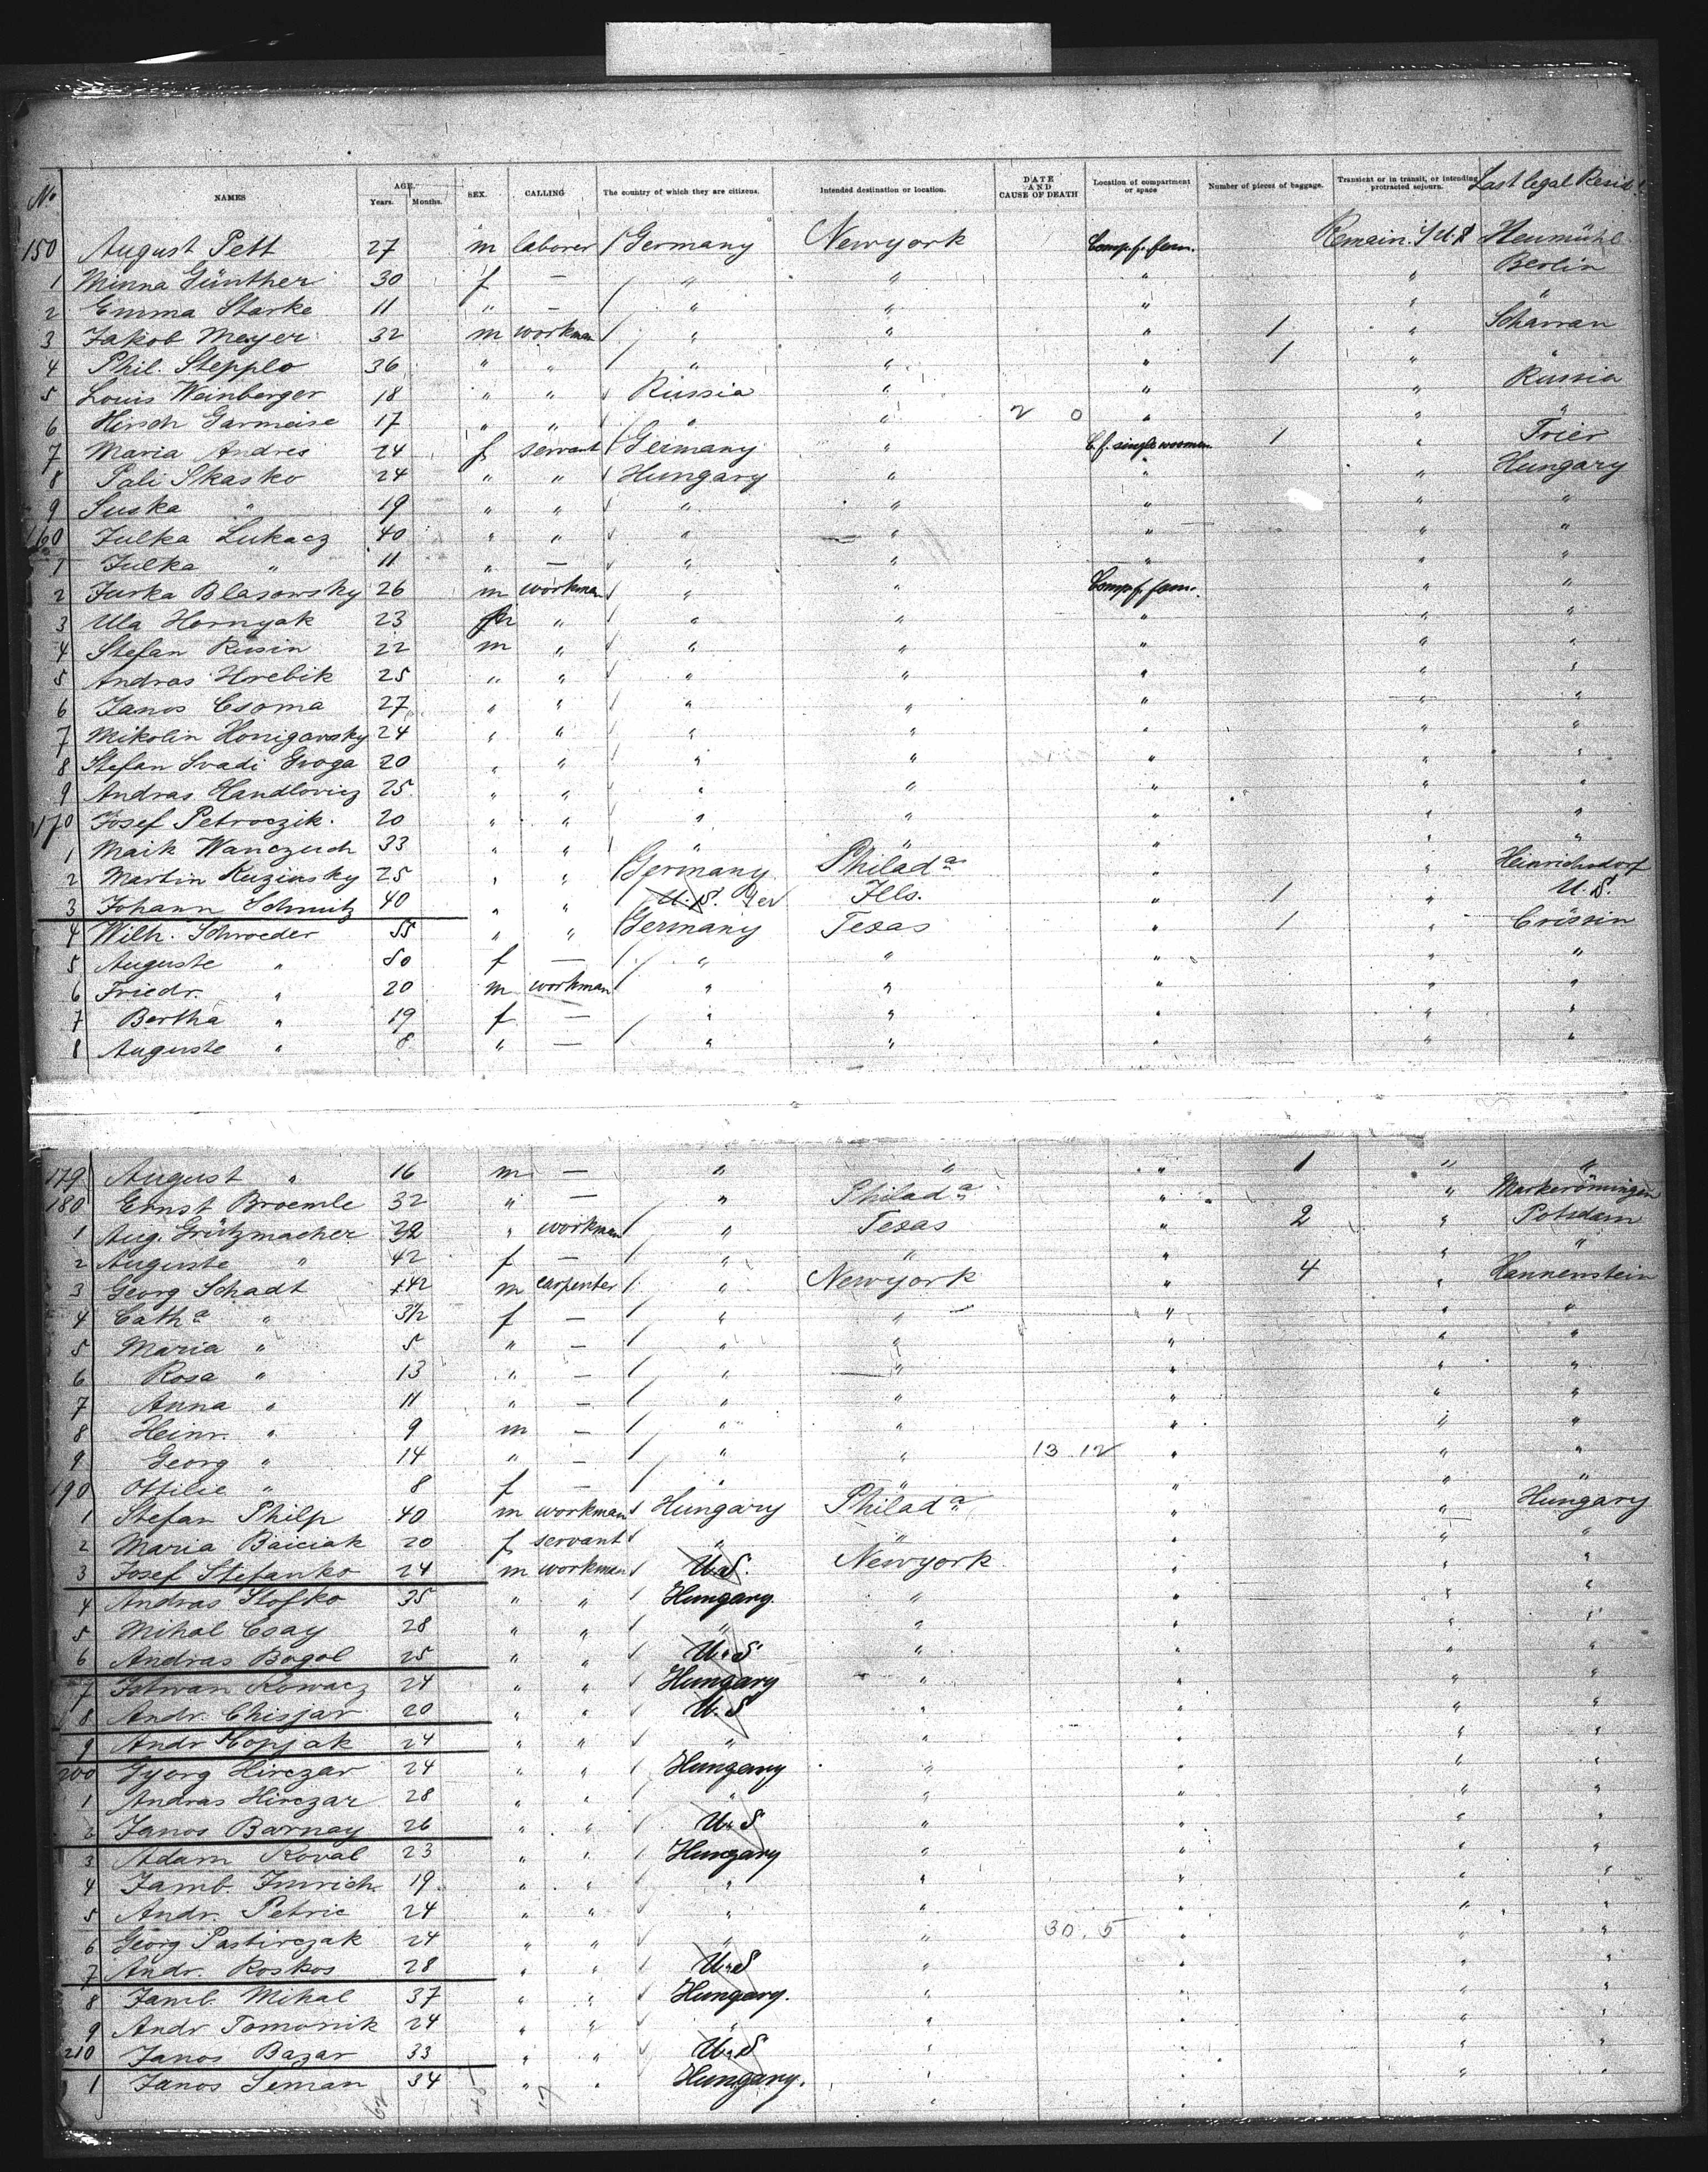 No NAMES AGE. Years. Months. SEX. CALLING The country of which they are citizens. Intended destination or location. DATE AND CAUSE OF DEATH Location of compartment or space Number of pieces of baggage. Transient or in transit, or intending protracted sojourn. Last legal Resid.
150 August Pett 27 m laborer Germany Newyork Comp. f. fam. Remain. Heumühl
1 Minna Günther 30 f — " " " " Berlin
2 Emma Starke 11 " — " " " " "
3 Jakob Meyer 32 m workman " " " 1 " Scharran
4 Phil. Stepplo 36 " " " " " 1 " "
5 Louis Weinberger 18 " " Russia " " " Russia
6 Hirsch Garmeise 17 " " " " 2 0 " " "
7 Maria Andres 24 f servant Germany " C. f. single woomen 1 " Trier
8 Pali Skasko 24 " " Hungary " " " Hungary
9 Suska " 19 " " " " " " "
160 Julka Lukacz 40 " " " " " " "
1 Julka " 11 " — " " " " "
2 Jurka Blasowsky 26 m workman " " Comp. f. fam. " "
3 Ula Hornyak 23 m " " " " " "
4 Stefan Rusin 22 m " " " " " "
5 Andras Hrebik 25 " " " " " " "
6 Janos Csoma 27 " " " " " " "
7 Mikolin Honigavsky 24 " " " " " " "
8 Stefan Svadi Groga 20 " " " " " " "
9 Andras Handlovicz 25 " " " " " " "
170 Josef Petroczik. 20 " " " " " " "
1 Maik Wanczuch 33 " " " " " " "
2 Martin Kuzinsky 25 " " Germany Philada " " Heinrichsdorf
3 Johann Schmitz 40 " " U.S. Ger Ills. " 1 " U.S.
4 Wilh. Schroeder 55 " " Germany Texas " 1 " Crössin
5 Auguste " 50 f — " " " " "
6 Friedr. " 20 m workman " " " " "
7 Bertha " 19 f — " " " " "
8 Auguste " 8 " — " " " " "
179 August " 16 m — " " " 1 " "
180 Ernst Broemle 32 " — " Philada " " Markerömingen
1 Aug. Grützmacher 32 " workman " Texas " 2 " Potsdam
2 Auguste " 42 f — " " " " "
3 Georg Schadt 42 m carpenter " Newyork " 4 " Hannenstein
4 Catha " f — " " " " "
5 Maria " 5 " — " " " " "
6 Rosa " 13 " — " " " " "
7 Anna " 11 " — " " " " "
8 Heinr. " 9 m — " " " " "
9 Georg " 14 " — " " 13 12 " " "
190 Ottilie " 8 f — " " " " "
1 Stefan Philp 40 m workman Hungary Philada " " Hungary
2 Maria Baiciak 20 f servant " " " " "
3 Josef Stefanko 24 m workman U.S. Newyork " " "
4 Andras Stofko 35 " " Hungary " " " "
5 Mihal Csay 28 " " " " " " "
6 Andras Bogol 25 " " U.S " " " "
7 Istwan Kowacz 24 " " Hungary " " " "
8 Andr. Chisjar 20 " " U.S " " " "
9 Andr Hopjak 24 " " " " " " "
200 Gyorg Hirczar 24 " " Hungary " " " "
1 Andras Hirczar 28 " " " " " " "
2 Janos Barnay 26 " " U.S " " " "
3 Adam Koval 23 " " Hungary " " " "
4 Jamb. Imrich 19 " " " " " " "
5 Andr. Petric 24 " " " " " " "
6 Georg Pastirczak 24 " " " " 30. 5 " " "
7 Andr. Roskos 28 " " U.S " " " "
8 Jamb. Mihal 37 " " Hungary. " " " "
9 Andr Tomonik 24 " " " " " " "
210 Janos Bazar 33 " " U.S " " " "
1 Janos Seman 34 " " Hungary. " " " "